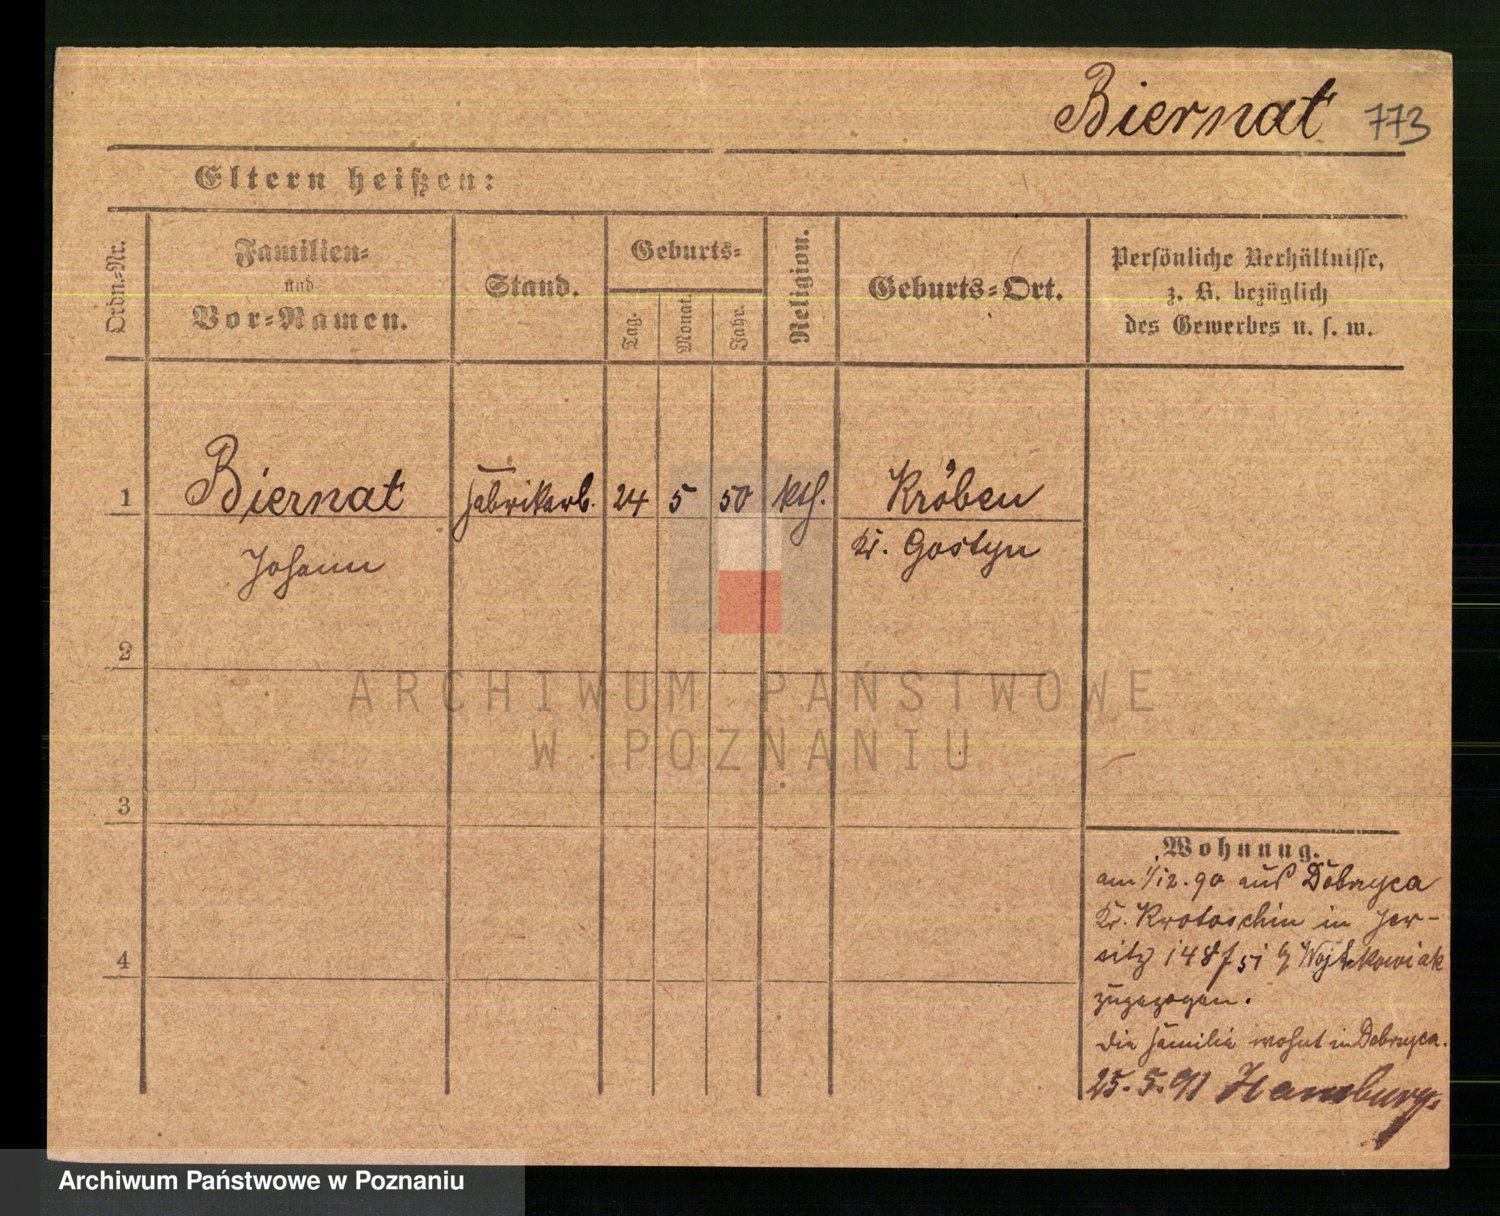 Biernat 773
Eltern heißen:
Ordn.-Nr.
Familien-
und
Vor-Namen.
Stand.
Geburts-
Tag.
Monat.
Jahr.
Religion.
Geburts-Ort.
Persönliche Verhältnisse,
z. B. bezüglich
des Gewerbes u. s. w.
1 Biernat Fabrikarb. 24 5 50 kth. Kröben
Johann Kr. Gostyn
2
3
4
Wohnung.
am 1/12. 90 aus Dobrzyca
Kr. Krotoschin in Jer-
sitz 148 / 51 b/ Wojtkowiak
zugezogen.
Die Familie wohnt in Dobrzyca.
25. 5. 91 Hamburg.
ARCHIWUM PAŃSTWOWE
W POZNANIU
Archiwum Państwowe w Poznaniu